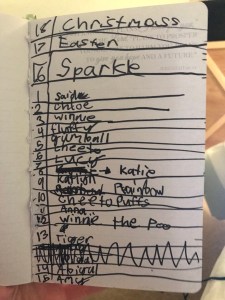 18 Christmass
17 Easter
6 Sparkle
1
2 chloe
3 winnie
4 fluffy
5 gumball
6 cheeto
7 Lucy
8 → Katie
9 Katlyn
Rainbow
10 CheetoPuffs
11 Anna
12 winne the Poo
13 Tiger
14
15 Abigail
16 Amy